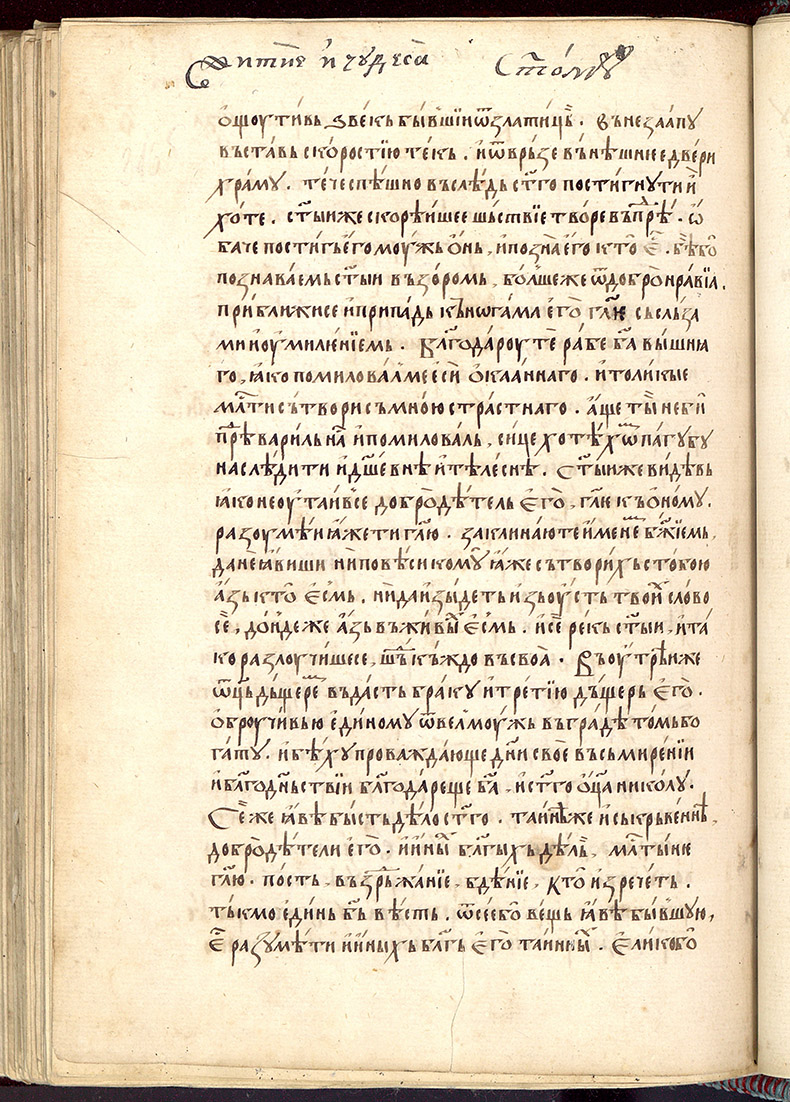 Житїе и чюдеса Ст҃го
ѡщоути́вь ѕвекь бы́вшїи ѿ злати́цѣ . въ незаапꙋ
въста́вь ско́ростїю те́кь . и҆ ѿврь́зе вънѣ́шнїе две́ри
хра́мꙋ . тече́ спѣ́шно въслѣ́дь ст҃го пости́гнꙋти и҆
хо́те . ст҃ыи же скорѣ́ишее шь́ствїе тво́ре въ прѣ́ . ѡ҆
баче пости́гь е҆го̀ моу́жь ѻ҆нь , и҆ позна̀ е҆го̀ кто̀ є҆ . бѣ̀ бо
познава́емь ст҃ыи въ зо́ромь , бо́лше же ѿ до́бро нра́вїа .
прибли́жисе и҆ припа́дь къ нога́мл е҆го̀ гл҃ю съ сльза
ми и҆ оумиле́нїемь . Бл҃года́роу те рабе бж҃а вы́шнꙗ
го , ꙗ҆ко поми́лова́л ме е҆сѝ ѻ҆каꙗ́ннаго . и҆ толикые
мл҃ти сътвори съ мно́ю стра́стнаго . а҆ще ты̀ не бѝ
прѣ́варилъ на̀ и҆ помилова́ль , си́це хотѣ́хѡⷨ па́гꙋбꙋ
наслѣ́дити и҆ дш҃е́внѣ и҆ тѣле́снѣ . Ст҃ыи же ви́дѣвь
ꙗ҆ко не оу҆таи́ все до́бродѣ́тель е҆го̀ , гл҃ю къ ѻ҆номꙋ .
разоумѣ́и ꙗ҆же ти гл҃ю . заклина́ю те и҆мене бж҃їемь ,
да не ꙗ҆ви́ши ни повѣ́си комꙋ̀ ꙗ҆же сътвори́хь с тобо́ю
а҆зь кто̀ е҆смь . ни да и҆зы́деть и҆зь оу҆сть твои́х сло́во
се , до́идеже а҆зь въ живы́х е҆смь . и҆ се ре́кь ст҃ыи , и҆ та́
ко разлоучи́шесе , кь́ждо въ своа̀ . Въ оу҆трїи же
ѿц҃ь дь́щере въда́сть бра́кꙋ и҆ тре́тїю дь́щерь е҆го̀ .
ѻ҆броучи́вь ю е҆ди́номꙋ ѿ велмоу́жь въ гра́дѣ то́мь бо
га́тꙋ . и҆ бѣ́хꙋ прова́жда́юще дн҃и своѐ въ съмире́нїи
и҆ бл҃годнь́ствїи бл҃года́реще бг҃а , и҆ ст҃го ѻ҆ц҃а нико́лꙋ .
Се́ же ꙗ҆вѣ бы́сть дѣ́ло ст҃го . та́ин же и҆ съкрьве́нїе ,
до́бродѣ́тели е҆го̀ . и҆ и҆ны́х бл҃гыхь дѣ́ль , мл҃ты́ню
гл҃ю . по́сть , въздрьжа́нїе , бдѣ́нїе , кто̀ и҆зрече́ть .
тъ́кмо е҆ди́нь бг҃ь вѣ́сть . ѿ се́е бо ве́щь ꙗ҆вѣ бы́вшꙋю ,
е҆ разꙋмѣ́ти и҆ и҆ныхь бл҃гь е҆го̀ та́инны́х . Е҆ли́ко бо